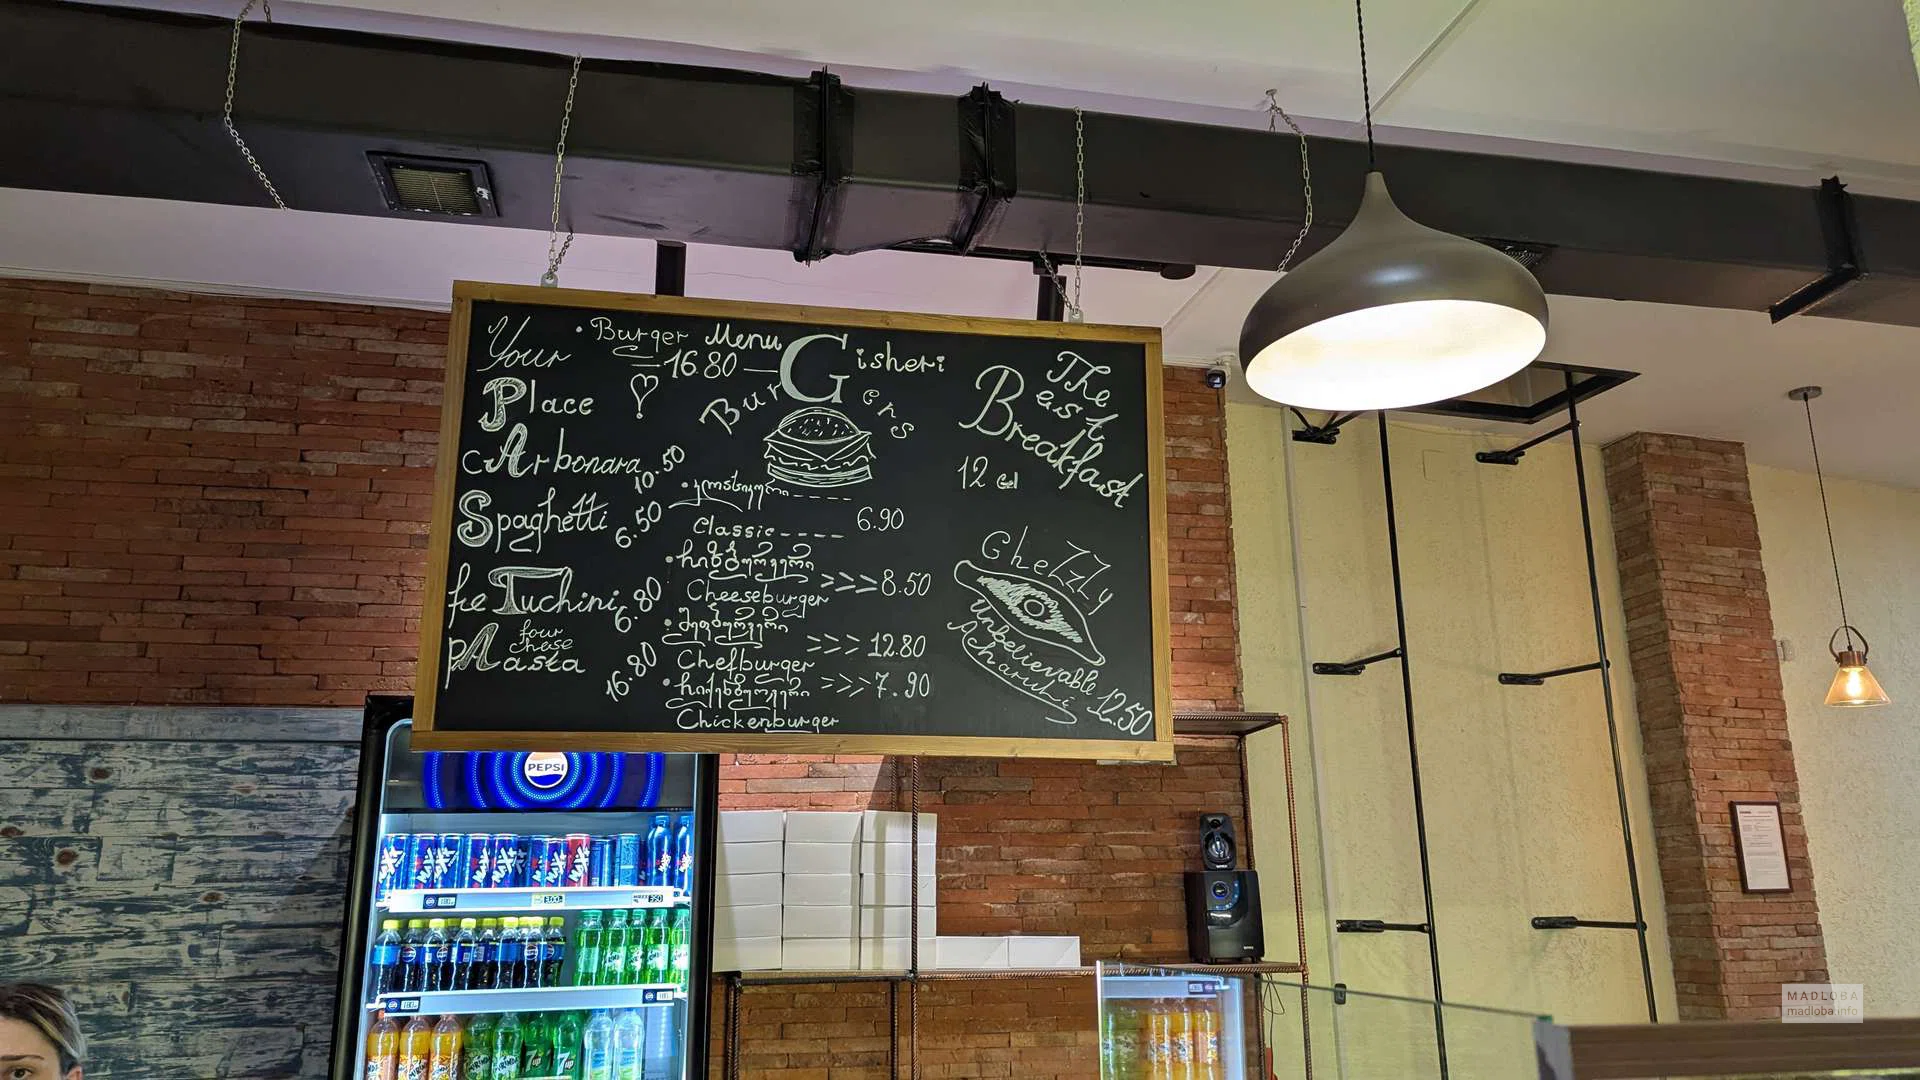 Your
Place
cArbonara 10.50
Spaghetti 6.50
feTuchini 6.80
four
chese
pAasta 16.80
• Burger Menu
—16.80—
Gisheri
Burgers
• კლასიკური - - - -
Classic - - - - 6.90
• ჩიზბურგერი
Cheeseburger >>>8.50
• შეფბურგერი
Chefburger >>> 12.80
• ჩიქენბურგერი >>>7.90
Chickenburger
The
Beast
Breakfast
12 Gel
GheZzLy
Unbelievable
Acharuli 12.50
PEPSI
7UP
MADLOBA
madloba.info